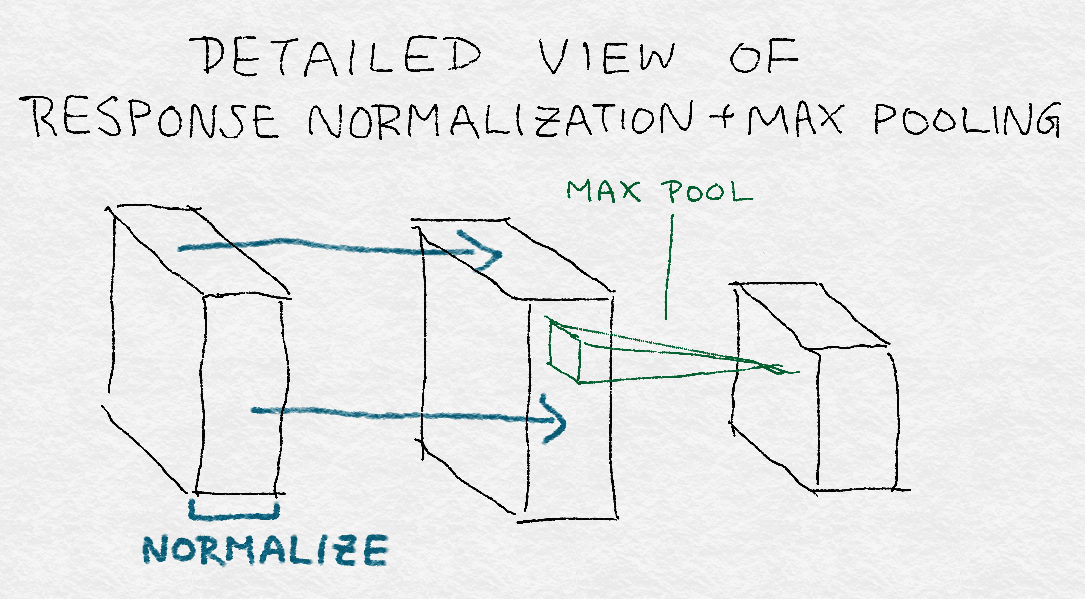 DETAILED VIEW OF
RESPONSE NORMALIZATION + MAX POOLING
MAX POOL
NORMALIZE